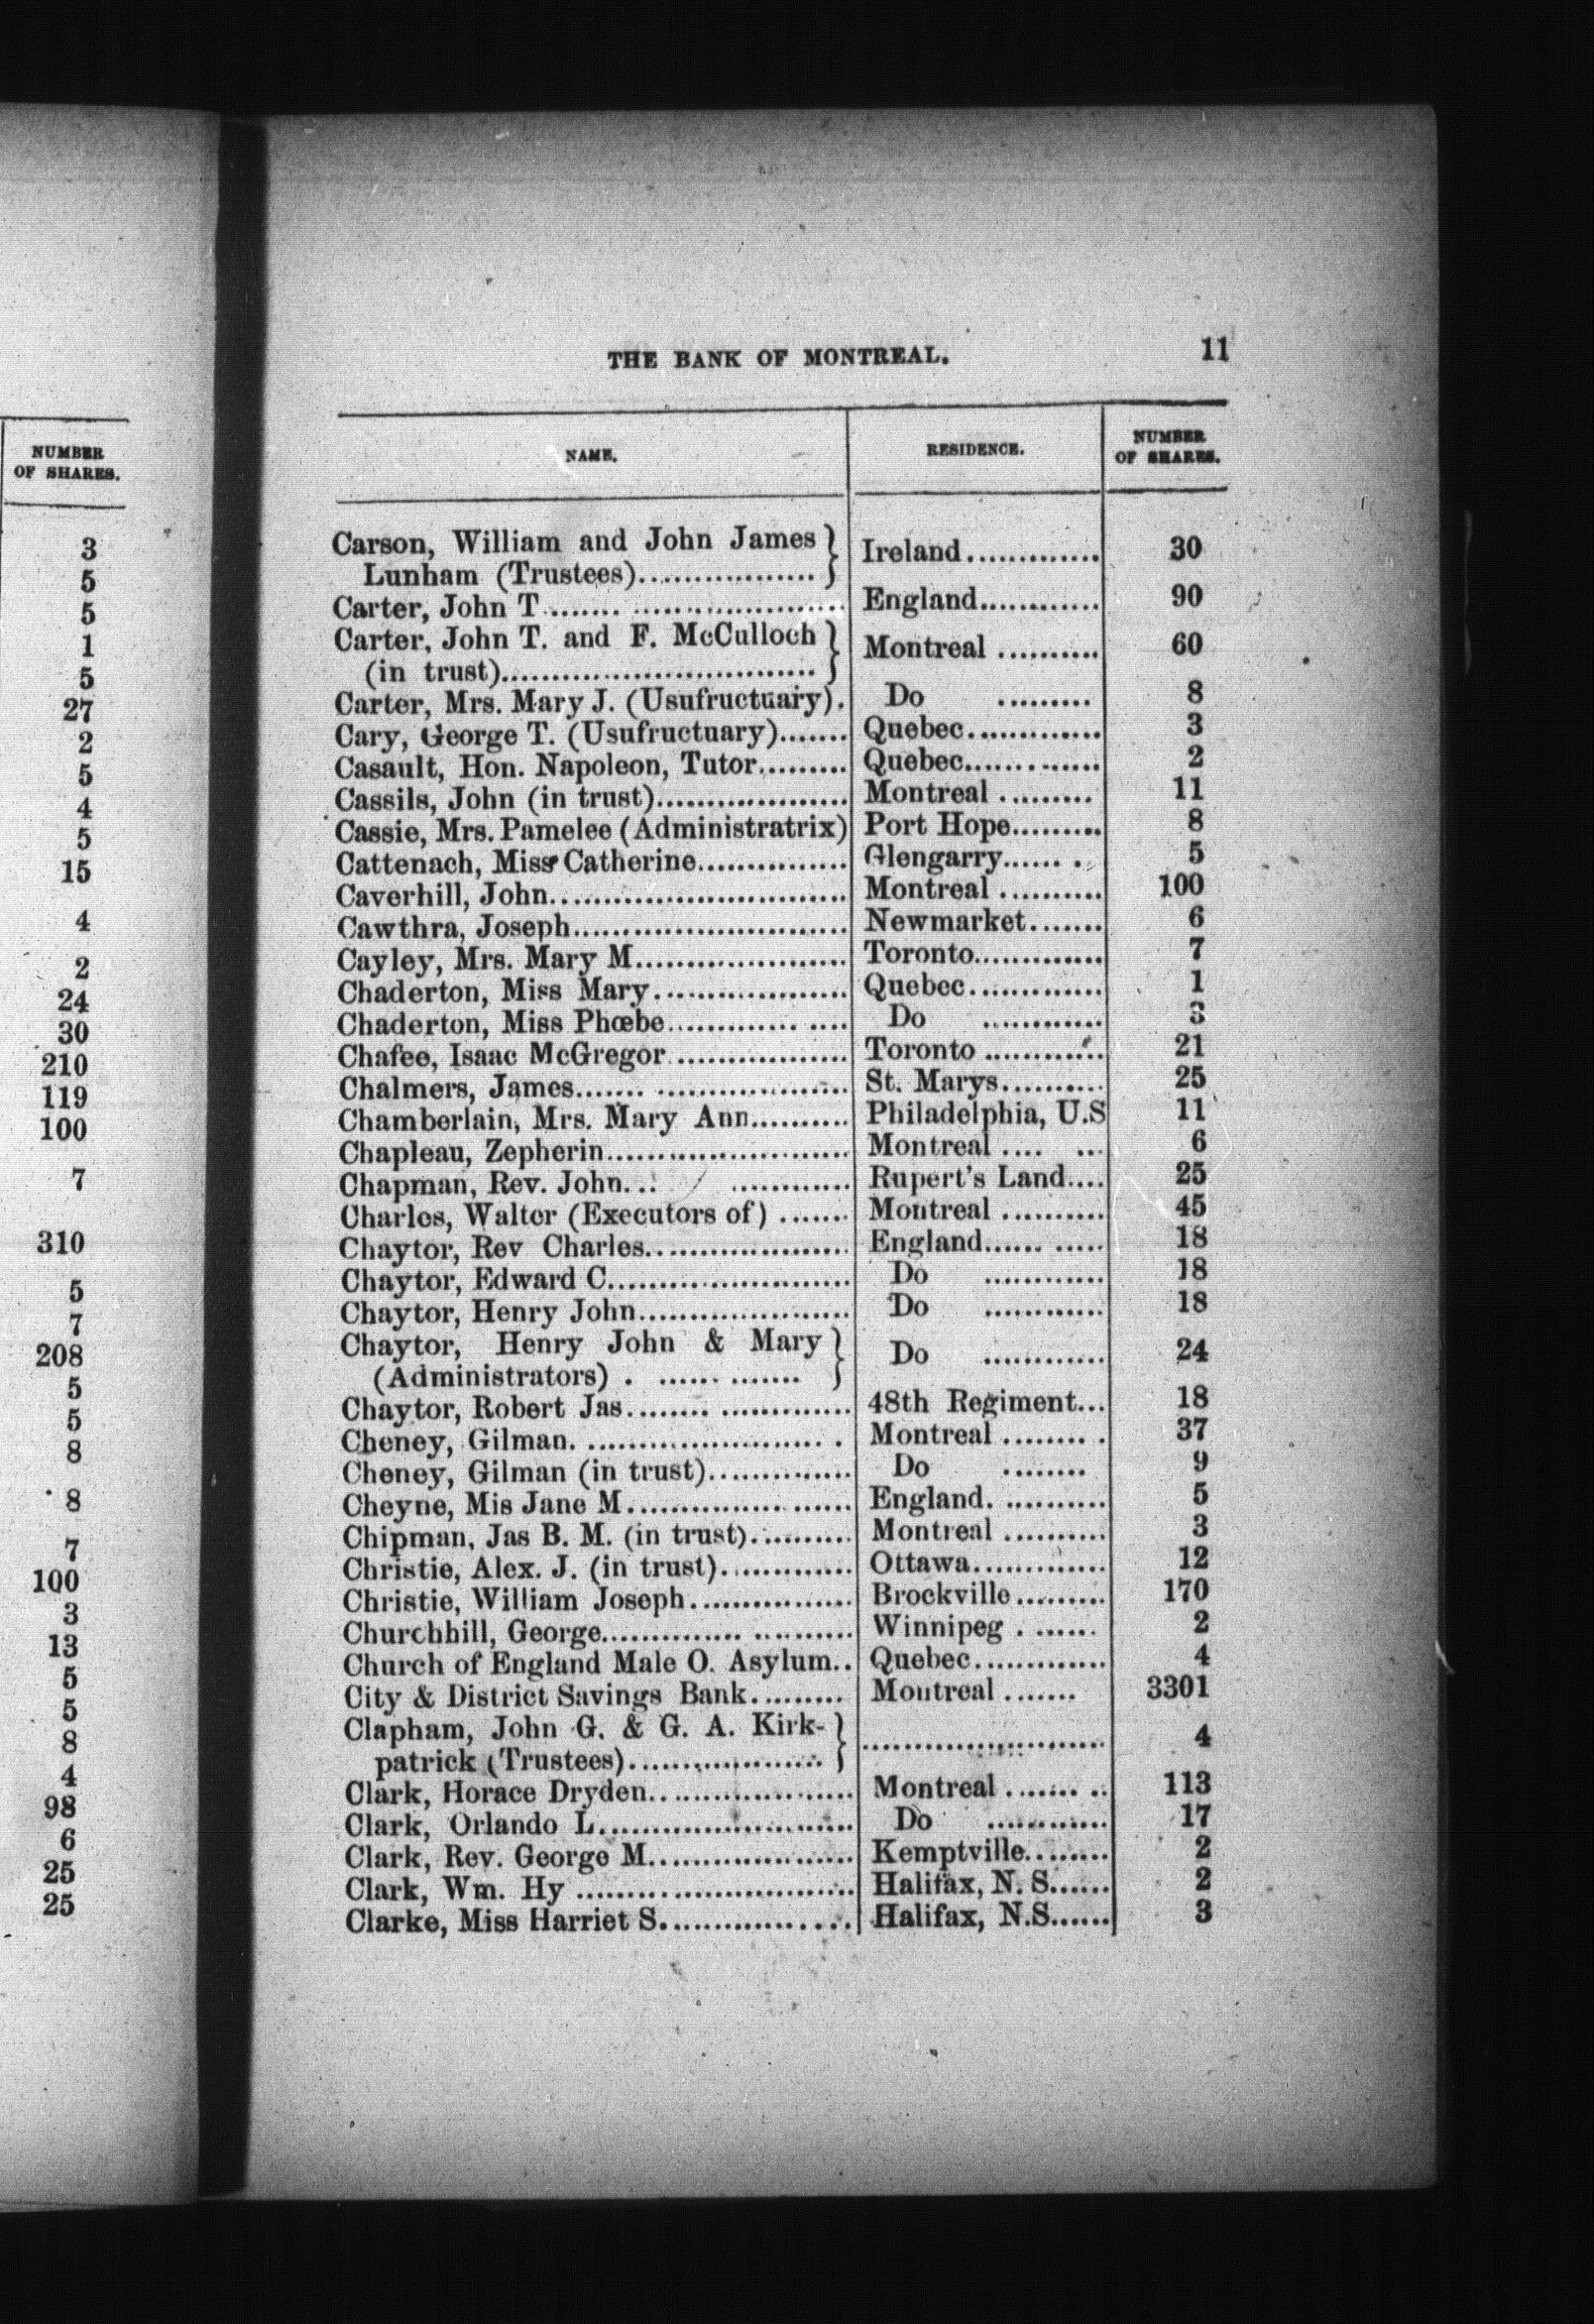 NUMBER
OF SHARES.
3
5
5
1
5
27
2
5
4
5
15
4
2
24
30
210
119
100
7
310
5
7
208
5
5
8
8
7
100
3
13
5
5
8
4
98
6
25
25
THE BANK OF MONTREAL. 11
NAME. RESIDENCE. NUMBER
OF SHARES.
Carson, William and John James
Lunham (Trustees)................. } Ireland............. 30
Carter, John T............................ England............ 90
Carter, John T. and F. McCulloch
(in trust)............................. } Montreal .......... 60
Carter, Mrs. Mary J. (Usufructuary). Do ......... 8
Cary, George T. (Usufructuary)....... Quebec............. 3
Casault, Hon. Napoleon, Tutor......... Quebec............. 2
Cassils, John (in trust).................. Montreal ......... 11
Cassie, Mrs. Pamelee (Administratrix) Port Hope......... 8
Cattenach, Miss Catherine............... Glengarry...... . 5
Caverhill, John............................ Montreal .......... 100
Cawthra, Joseph.......................... Newmarket....... 6
Cayley, Mrs. Mary M.................... Toronto............. 7
Chaderton, Miss Mary................... Quebec............. 1
Chaderton, Miss Phœbe............. .... Do ............ 3
Chafee, Isaac McGregor ................. Toronto ............ 21
Chalmers, James....... .................. St. Marys.......... 25
Chamberlain, Mrs. Mary Ann.......... Philadelphia, U.S 11
Chapleau, Zepherin....................... Montreal .... ... 6
Chapman, Rev. John... ............ Rupert's Land.... 25
Charles, Walter (Executors of) ....... Montreal .......... 45
Chaytor, Rev Charles.................... England...... ..... 18
Chaytor, Edward C....................... Do ............ 18
Chaytor, Henry John..................... Do ............ 18
Chaytor, Henry John & Mary
(Administrators) . ...... ....... } Do ............ 24
Chaytor, Robert Jas........ ............. 48th Regiment... 18
Cheney, Gilman. ....................... . Montreal ........ . 37
Cheney, Gilman (in trust).............. Do ........ 9
Cheyne, Mis Jane M............... ...... England. .......... 5
Chipman, Jas B. M. (in trust).......... Montreal .......... 3
Christie, Alex. J. (in trust)............. Ottawa............. 12
Christie, William Joseph................ Brockville......... 170
Churchhill, George.............. .......... Winnipeg . ...... 2
Church of England Male O. Asylum.. Quebec............. 4
City & District Savings Bank......... Montreal ....... 3301
Clapham, John G. & G. A. Kirk-
patrick (Trustees)................... } ........................ 4
Clark, Horace Dryden.................... Montreal ....... .. 113
Clark, Orlando L......................... Do ............ 17
Clark, Rev. George M.................... Kemptville........ 2
Clark, Wm. Hy ........................... Halifax, N. S...... 2
Clarke, Miss Harriet S................... Halifax, N.S...... 3